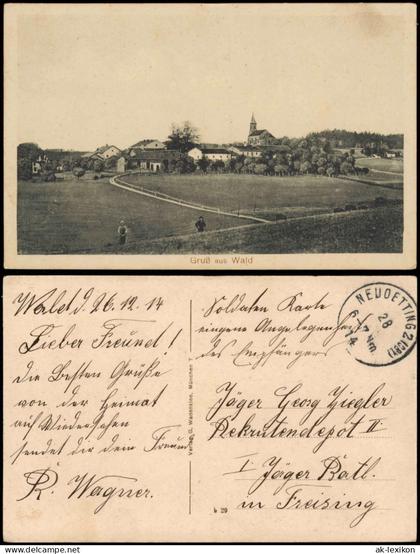 Gruß aus Wald
Wald d. 26.12.14
Lieber Freund!
die Besten Grüße
von der Heimat
auf Wiedersehen
sendet dir dein Freund
R. Wagner.
Soldaten Karte
eingene Angelegenheit
des Empfängers
NEUOETTING 2 (OBB)
28
14
Jäger Georg Ziegler
Rekrutendepot II
I Jäger Batl.
in Freising
b 20